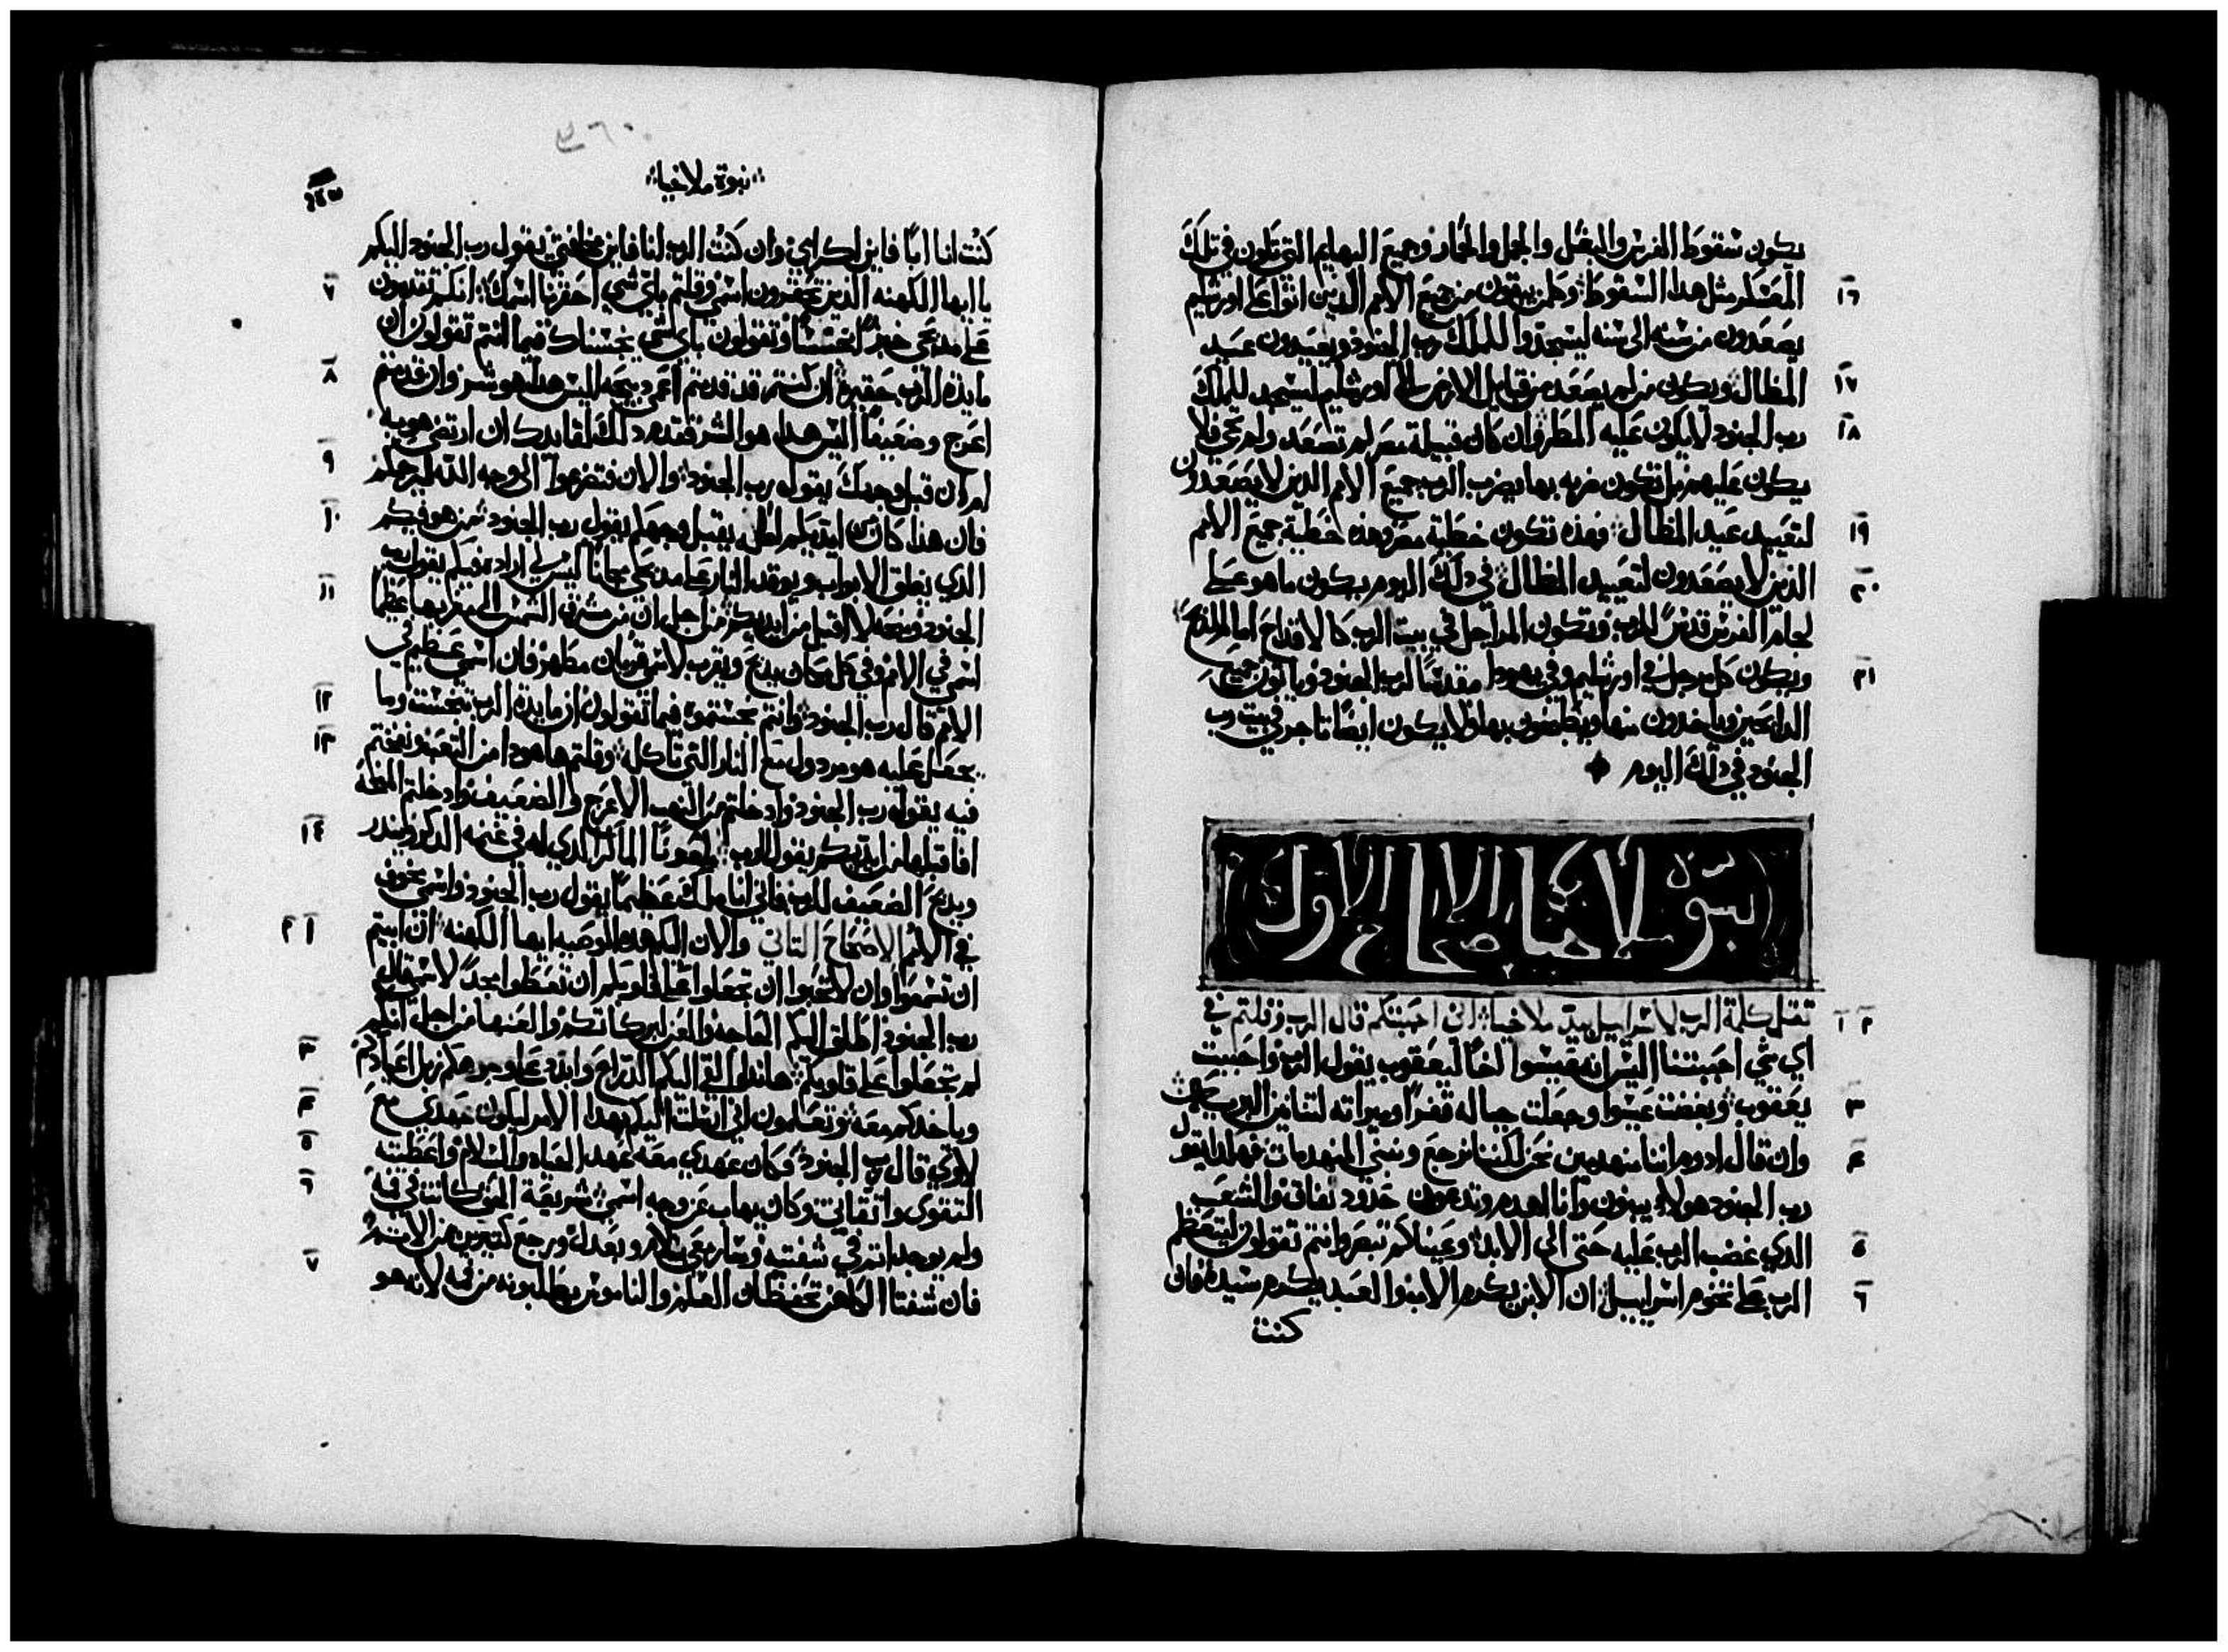 يكون سقوط الفرس والبغل والجمل والحمار وجميع البهايم التي تكون في تلك
١٦ المعسكر مثل هذا السقوط وكل من يبقون من جميع الامم الذين اتوا على اورشليم
يصعدون من سنه الى سنه ليسجدوا للملك رب الجنود ويعيدون عيد
١٧ المظال ويكون من لم يصعد من قبايل الارض الى اورشليم ليسجد للملك
١٨ رب الجنود لا يكون عليه المطر وان كان قبيلة مصر لم تصعد ولم تجي فلا
يكون عليهم بل تكون ضربه بها يضرب الرب جميع الامم الذين لا يصعدون
١٩ لتعييد عيد المظال فهذه تكون خطية مصر وهذه خطية جميع الامم
٢٠ الذين لا يصعدون لتعييد المظال في ذلك اليوم يكون ما هو على
لجام الفرس قدس للرب وتكون المراجل في بيت الرب كالاقداح امام المذبح
٢١ ويكون كل مرجل في اورشليم وفي يهودا مقدسا لرب الجنود وياتون جميع
الدابحين وياخدون منها ويطبخون بها ولا يكون ايضا تاجر في بيت رب
الجنود في ذلك اليوم
نبوة ملاخيا الاصحاح الاول
١ ٢ ثقل كلمة الرب لاسراييل بيد ملاخيا اني احببتكم قال الرب وقلتم في
اي شي احببتنا اليس انه عيسوا اخا ليعقوب يقول الرب واحببت
٣ يعقوب وبغضت عيسوا وجعلت جباله قفرا وميراثه لتنانين البريه
٤ وان قال ادوم اننا منهدمين نحن لكننا نرجع ونبني المنهدمات فهكذا يقول
رب الجنود هولا يبنون وانا اهدم وتدعون حدود نفاق والشعب
٥ الذي غضب الرب عليه حتى الى الابد وعيناكم تبصر وانتم تقولون ليتعظم
٦ الرب على تخوم اسراييل ان الابن يكرم الاب والعبد يكرم سيده فان
كنت
٤٦٠
نبوة ملاخيا
كنت انا ابا فاين اكرامي وان كنت الرب لنا فاين مخافتي يقول رب الجنود اليكم
٧ يا ايها الكهنه الذين تحقرون اسمي وقلتم باي شي احقرنا اسمك انكم تقدمون
على مدبحي خبزا نجسا وتقولون باي شي نجسناك فيما انتم تقولون ان
٨ مايدة الرب حقيره ان كنتم قد قدمتم اعمى دبيحه اليس هدا هو شر وان قدمتم
اعرج وضعيفا اليس هدا هو الشر فقدم ذلك لقايدك ان ارتضى هو به
٩ او ان قبل وجهك يقول رب الجنود والان فتضرعوا الى وجه الله ليرحمكم
١٠ فان هدا كان من ايديكم لعل يقبل وجهكم يقول رب الجنود من هو فيكم
الذي يغلق الابواب ويوقد النار على مدبحي مجانا ليس لي ارادة فيكم يقول رب
١١ الجنود ودبيحه لا اقبل من ايديكم من اجل ان من مشرق الشمس الى مغربها عظيما
اسمي في الامم وفي كل مكان يدبح ويقرب لاسمي قربان مطهر فان اسمي عظيم في
١٢ الامم قال رب الجنود وانتم نجستموه فيما تقولون ان مايدة الرب تنجست وما
١٣ يجعل عليه هو مردول مع النار التي تاكل وقلتم ها هودا من التعب ونفختم
فيه يقول رب الجنود وادخلتم من النهب الاعرج والضعيف وادخلتم المنحه
١٤ افاقبلها من ايديكم يقول الرب ملعونا الماكر الدي له في غنمه الدكر وينذر
ويدبح الضعيف للرب فاني انا ملك عظيما يقول رب الجنود واسمي مخوف
١ ٢ في الامم الاصحاح التاني والان اليكم هده الوصيه ايها الكهنه ان ابيتم
ان تسمعوا وان لا تحبوا ان تجعلوا على قلوبكم ان تعطوا مجدا لاسمي قال
رب الجنود اطلق اليكم الفاقه والعن بركاتكم والعنها من اجل انكم
٣ لم تجعلوا على قلوبكم هاندا القي اليكم الدراع وابدد على وجوهكم زبل اعيادكم
٤ وياخدكم معه وتعلمون اني ارسلت اليكم بهدا الامر ليكون عهدي مع
٥ لاوي قال رب الجنود وكان عهدي معه عهد الحياه والسلام واعطيته
٦ التقوى واتقاني وكان يهاب عن وجه اسمي شريعة الحق كانت في فيه
ولم يوجد اتم في شفتيه وسار معي بسلام وبعدل ورجع كتيرين من الاثم
٧ فان شفتا الكاهن تحفظان العلم والناموس يطلبونه من فيه لانه هو